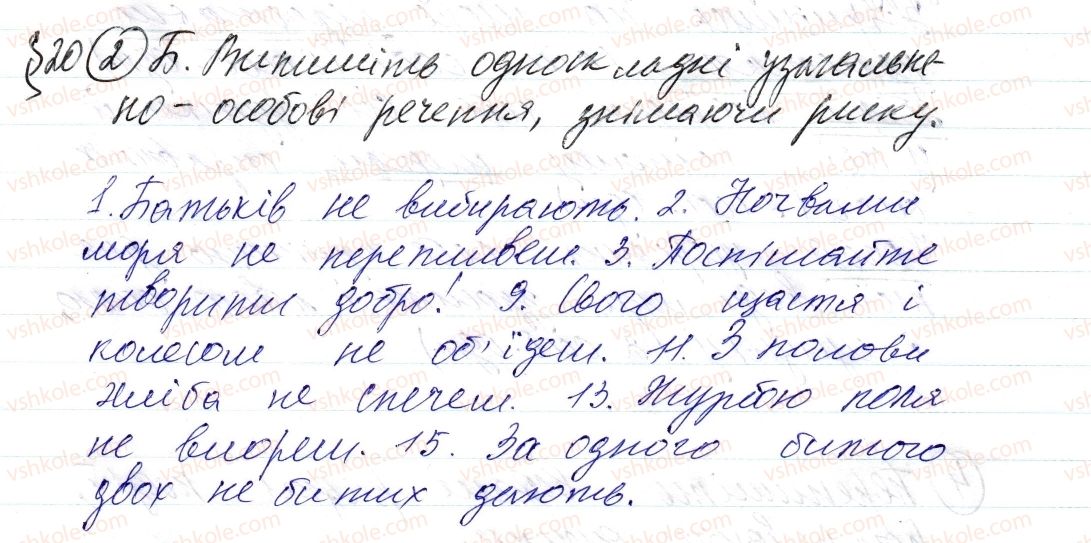 §20 (2) Б. Випишіть односкладні узагальне-
но-особові речення, знімаючи риску.
1. Батьків не вибирають. 2. Ночвами
моря не перепливеш. 3. Поспішайте
творити добро! 9. Свого щастя і
колесом не об'їдеш. 11. З полови
хліба не спечеш. 13. Журбою поля
не виореш. 15. За одного битого
двох не битих дають.